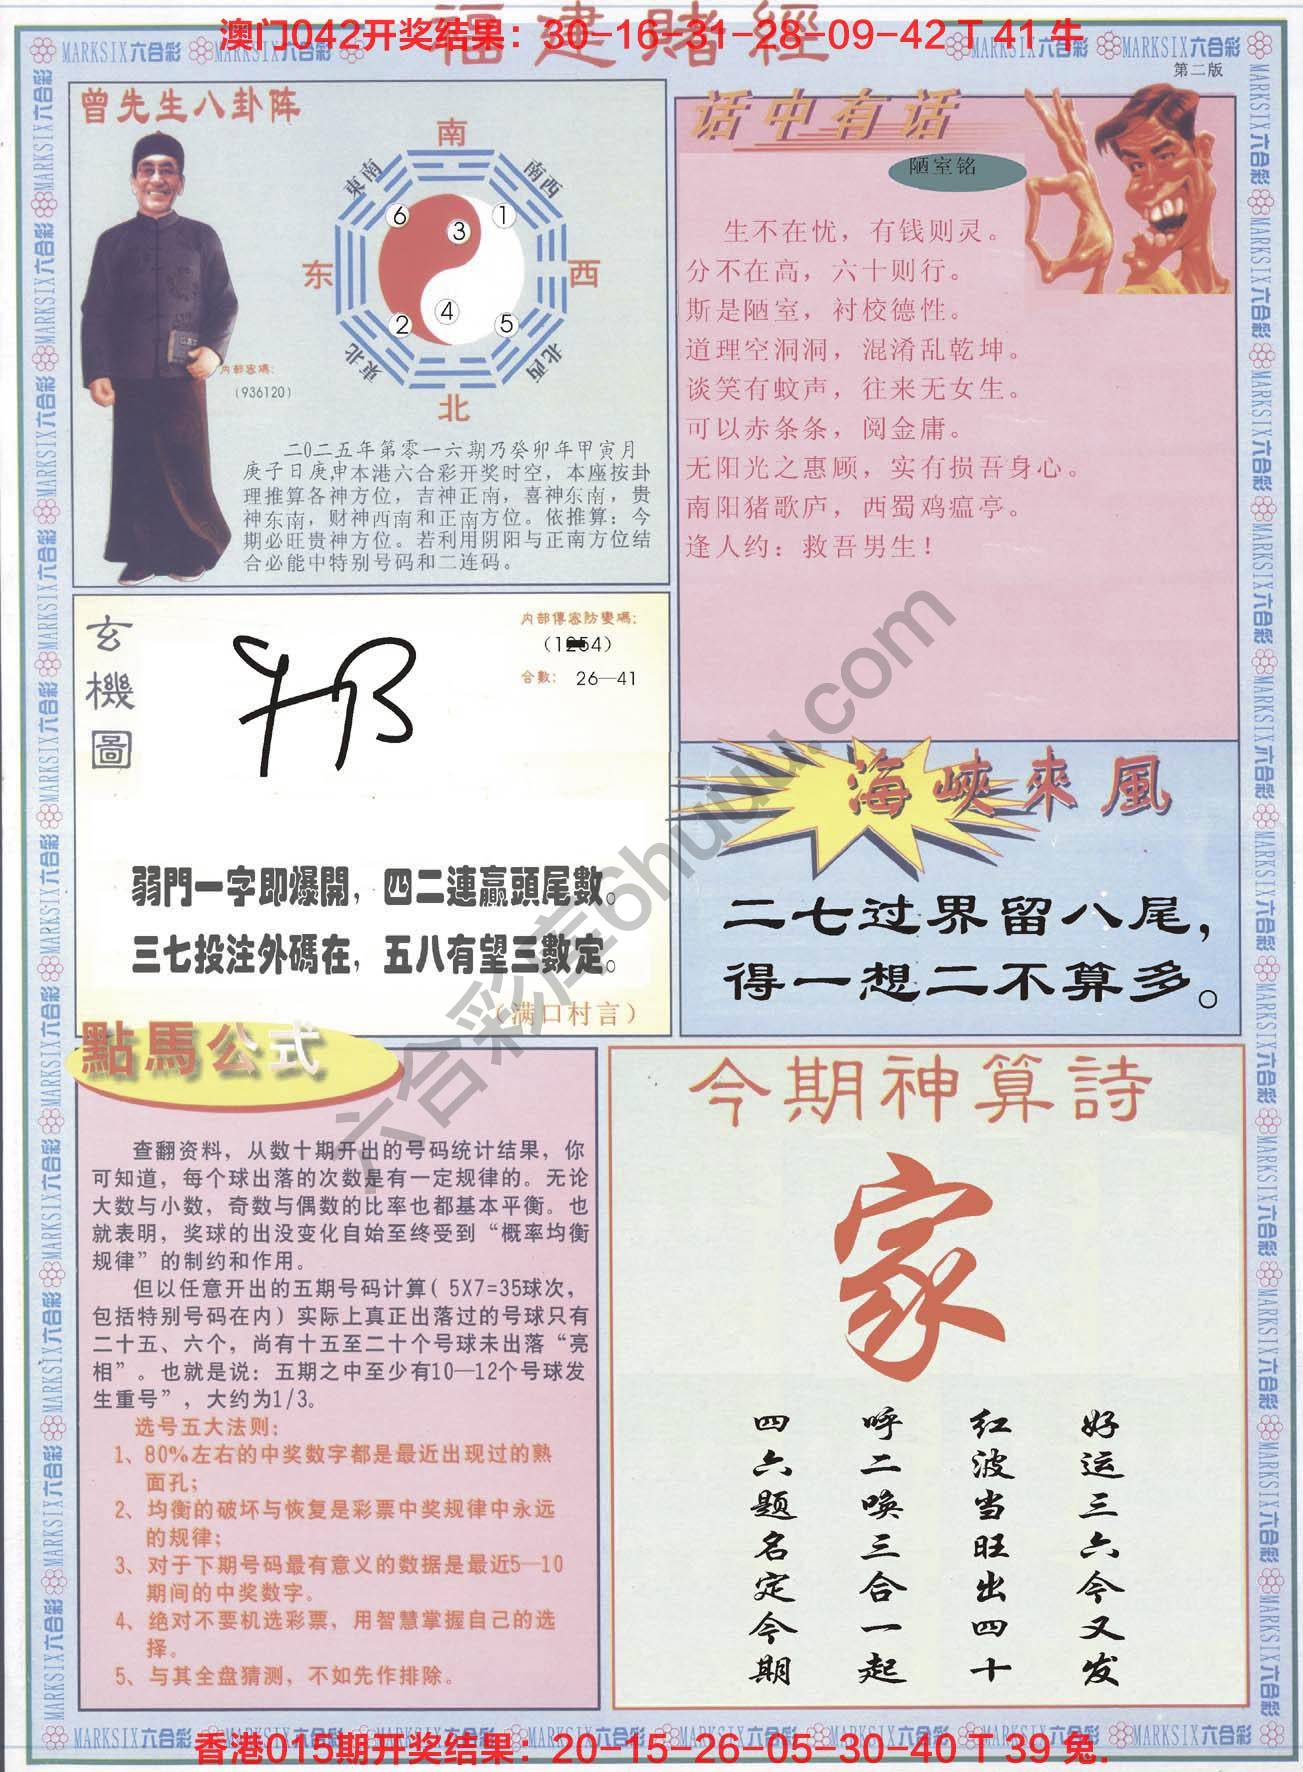 福建賭經
澳门042开奖结果：30-16-31-28-09-42 T 41 牛
MARKSIX六合彩 MARKSIX六合彩
MARKSIX六合彩 MARKSIX六合彩
第二版
曾先生八卦阵
南
東南
南西
6
1
3
东
西
4
2
5
東北
北西
北
内部密碼：
（936120）
二0二五年第零一六期乃癸卯年甲寅月
庚子日庚申本港六合彩开奖时空，本座按卦
理推算各神方位，吉神正南，喜神东南，贵
神东南，财神西南和正南方位。依推算：今
期必旺贵神方位。若利用阴阳与正南方位结
合必能中特别号码和二连码。
话中有话
陋室铭
生不在忧，有钱则灵。
分不在高，六十则行。
斯是陋室，衬校德性。
道理空洞洞，混淆乱乾坤。
谈笑有蚊声，往来无女生。
可以赤条条，阅金庸。
无阳光之惠顾，实有损吾身心。
南阳猪歌庐，西蜀鸡瘟亭。
逢人约：救吾男生！
玄機圖
内部傳密防變碼：
合數： 26—41
弱門一字即爆開，四二連贏頭尾數。
三七投注外碼在，五八有望三數定。
（满口村言）
海峽來風
二七过界留八尾，
得一想二不算多。
點馬公式
查翻资料，从数十期开出的号码统计结果，你
可知道，每个球出落的次数是有一定规律的。无论
大数与小数，奇数与偶数的比率也都基本平衡。也
就表明，奖球的出没变化自始至终受到“概率均衡
规律”的制约和作用。
但以任意开出的五期号码计算（ 5X7=35球次，
包括特别号码在内）实际上真正出落过的号球只有
二十五、六个，尚有十五至二十个号球未出落“亮
相”。也就是说：五期之中至少有10—12个号球发
生重号”，大约为1/3。
选号五大法则：
1、80%左右的中奖数字都是最近出现过的熟
面孔；
2、均衡的破坏与恢复是彩票中奖规律中永远
的规律；
3、对于下期号码最有意义的数据是最近5—10
期间的中奖数字。
4、绝对不要机选彩票，用智慧掌握自己的选
择。
5、与其全盘猜测，不如先作排除。
今期神算詩
家
好运三六今又发
红波当旺出四十
呼二唤三合一起
四六题名定今期
六合彩库6huuu.com
MARKSIX六合彩
香港015期开奖结果：20-15-26-05-30-40 T 39 兔.